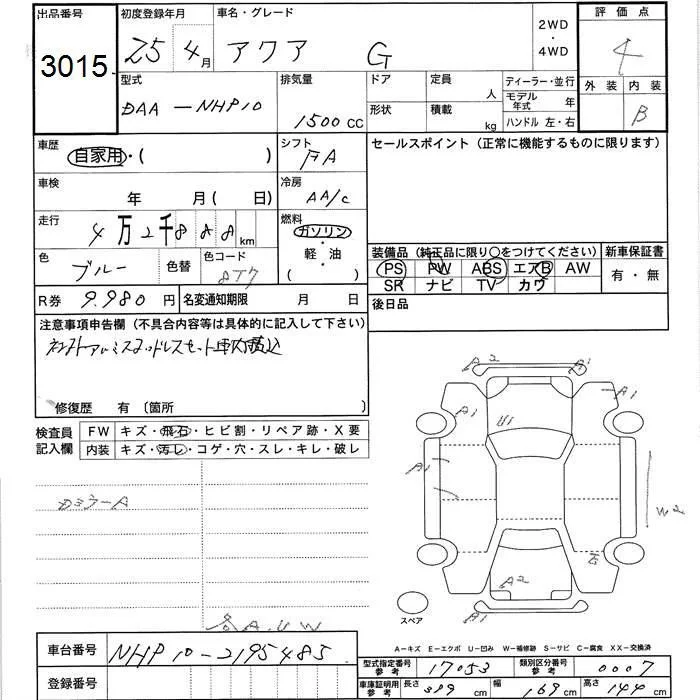 出品番号
3015
初度登録年月
25 4月
車名・グレード
アクア G
2WD
・
4WD
評価点
4
外装 内装
B
型式
DAA-NHP10
排気量
1500 CC
ドア
形状
定員 人
積載 kg
ディーラー・並行
モデル年式 年
ハンドル 左・右
車歴
自家用・( )
シフト
FA
セールスポイント (正常に機能するものに限ります)
車検
年 月 (日)
冷房
AA/C
走行
4万2千888km
燃料
ガソリン
・
軽・油
・
( )
色
ブルー
色替
色コード
8T7
装備品 (純正品に限り○をつけてください)
新車保証書
PS PW ABS エアB AW
SR ナビ TV カワ
有・無
R券 9.980円
名変通知期限 月 日
後日品
注意事項申告欄 (不具合内容等は具体的に記入して下さい)
修復歴 有 〔箇所 〕
検査員
記入欄
FW キズ・飛石・ヒビ割・リペア跡・X要
内装 キズ・汚レ・コゲ・穴・スレ・キレ・破レ
カミラーA
各A.U.W
A2
A1
A1
A1
U1
A1
W2
A2
A1
スペア
A-キズ E-エクボ U-凹み W-補修跡 S-サビ C-腐食 XX-交換済
車台番号 NHP10-2195485
登録番号
型式指定番号
参考
17053
類別区分番号
参考
0007
車庫証明用
参考
長さ 399 cm
幅 169 cm
高さ 144 cm